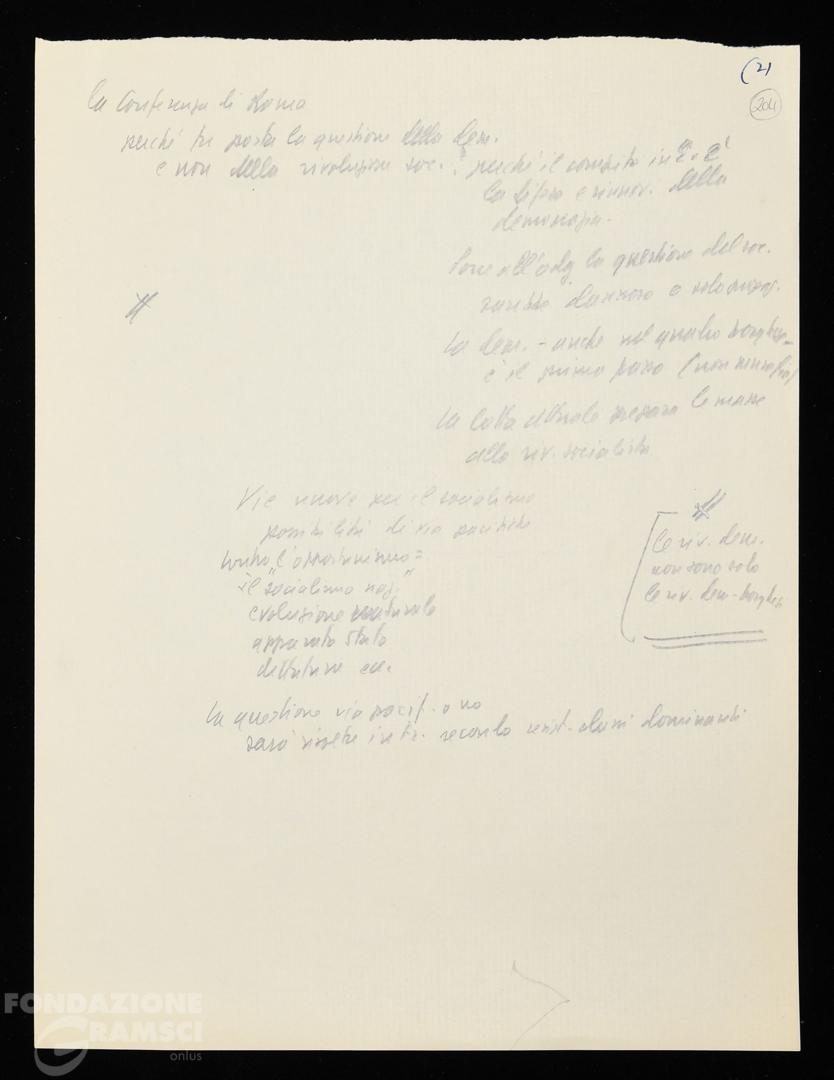 (2)
204
La Conferenza di Roma
perché fu posta la questione della dem.
e non della rivoluzione soc.? perché il compito in è
la difesa e rinnov. della
democrazia.
Porre all'odg. la questione del soc.
sarebbe dannoso e
La dem. - anche nel quadro borghese -
è il primo passo
La lotta attuale prepara le masse
alla riv. socialista
Vie nuove per il socialismo
possibilità di via pacifica
contro l'opportunismo =
il "socialismo naz."
evoluzione naturale
apparato Stato
dittatura ecc.
le riv. dem.
non sono solo
le riv. dem-borghesi
La questione via pacif. o no
sarà risolta secondo resist. classi dominanti
FONDAZIONE
GRAMSCI
onlus